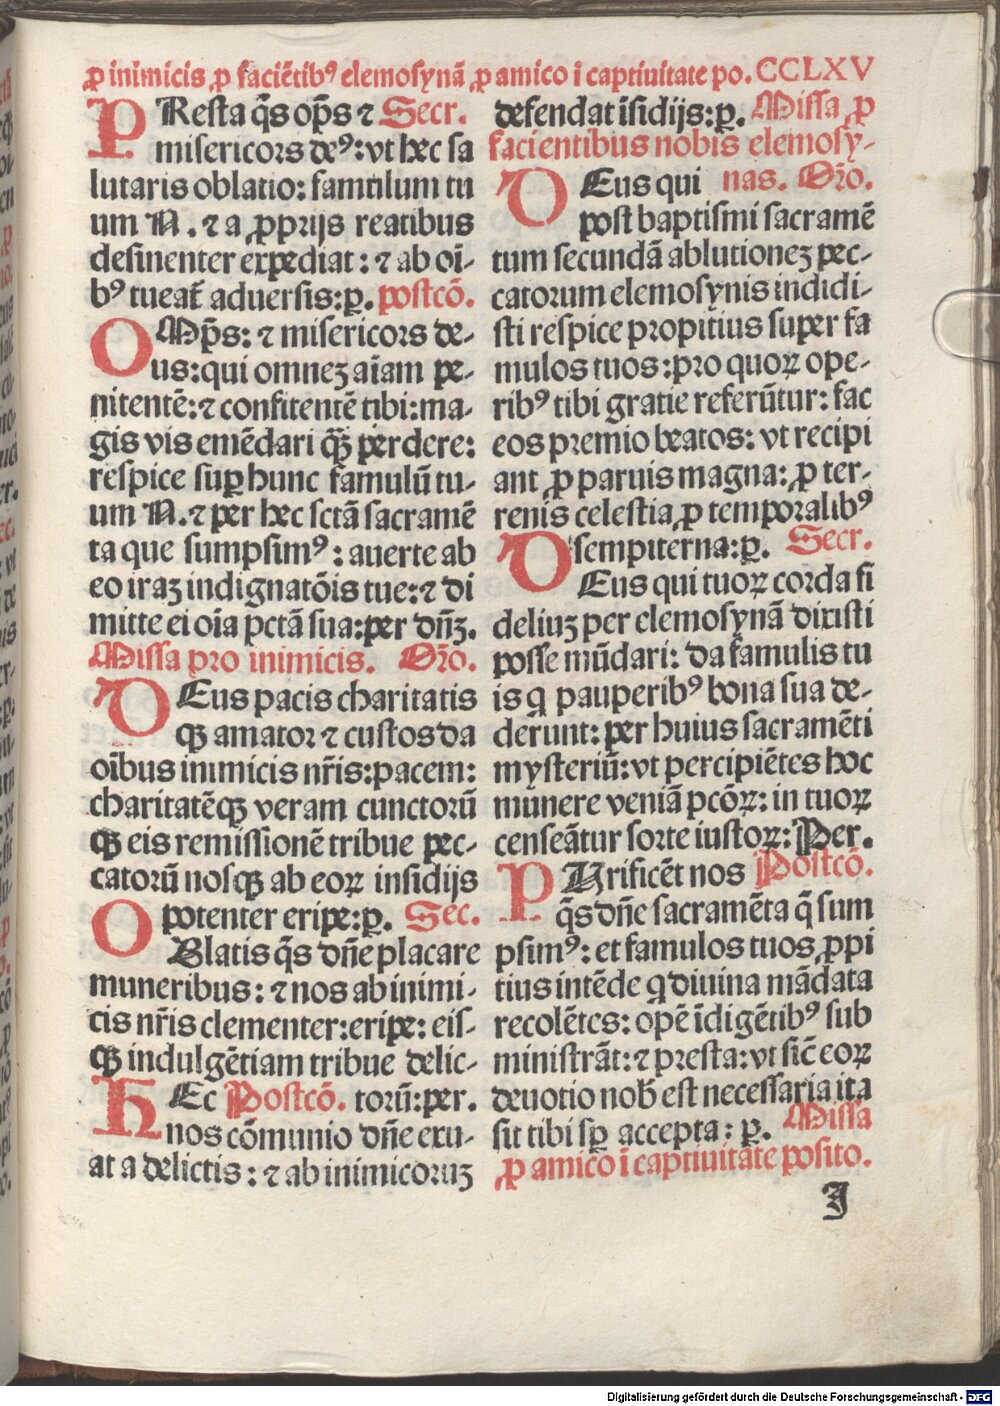 ꝓ inimicis ꝓ faciẽtibꝰ elemosynã ꝓ amico ĩ captiuitate po. CCLXV
PResta q̃s op̃s ⁊ Secr.
misericors deꝰ: vt hec sa
lutaris oblatio: famulum tu
um N. ⁊ a ꝓprijs reatibus
desinenter expediat: ⁊ ab oĩ-
bꝰ tueat᷑ aduersis: ꝑ. postcõ.
OMp̃s: ⁊ misericors de-
us: qui omneꝫ aĩam pe-
nitentẽ: ⁊ confitentẽ tibi: ma-
gis vis emẽdari q̃ꝫ perdere:
respice suꝑ hunc famulũ tu-
um N. ⁊ per hec sctã sacramẽ
ta que sumpsimꝰ: auerte ab
eo iraꝫ indignatõis tue: ⁊ di
mitte ei oĩa pctã sua: per dñꝫ.
Missa pro inimicis. Orõ.
DEus pacis charitatis
qꝫ amator ⁊ custos da
oĩbus inimicis nr̃is: pacem:
charitatẽqꝫ veram cunctorũ
qꝫ eis remissionẽ tribue pec-
catorũ nosqꝫ ab eoꝝ insidijs
potenter eripe: ꝑ. Sec.
OBlatis q̃s dñe placare
muneribus: ⁊ nos ab inimi-
cis nr̃is clementer: eripe: eis-
qꝫ indulgẽtiam tribue delic-
HEc Postcõ. torũ: per.
nos cõmunio dñe exu-
at a delictis: ⁊ ab inimicoruꝫ
defendat ĩsidijs: ꝑ. Missa ꝓ
facientibus nobis elemosy-
DEus qui nas. Orõ.
post baptismi sacramẽ
tum secundã ablutioneꝫ pec-
catorum elemosynis indidi-
sti respice propitius super fa
mulos tuos: pro quoꝝ ope-
ribꝰ tibi gratie referũtur: fac
eos premio beatos: vt recipi
ant ꝓ paruis magna: ꝓ ter-
renis celestia ꝓ temporalibꝰ
sempiterna: ꝑ. Secr.
DEus qui tuoꝝ corda fi
deliuꝫ per elemosynã dixisti
posse mũdari: da famulis tu
is q̇ pauperibꝰ bona sua de-
derunt: per huius sacramẽti
mysteriũ: vt percipiẽtes hoc
munere veniã pcõꝝ: in tuoꝝ
censeãtur sorte iustoꝝ: Per.
PUrificẽt nos Postcõ.
q̃s dñe sacramẽta q̃ sum
psimꝰ: et famulos tuos ꝓpi
tius intẽde q̇ diuina mãdata
recolẽtes: opẽ ĩdigẽtibꝰ sub
ministrãt: ⁊ presta: vt sic̃ eoꝝ
deuotio nob̃ est necessaria ita
sit tibi sꝑ accepta: ꝑ. Missa
ꝓ amico ĩ captiuitate posito.
J
Digitalisierung gefördert durch die Deutsche Forschungsgemeinschaft - DFG